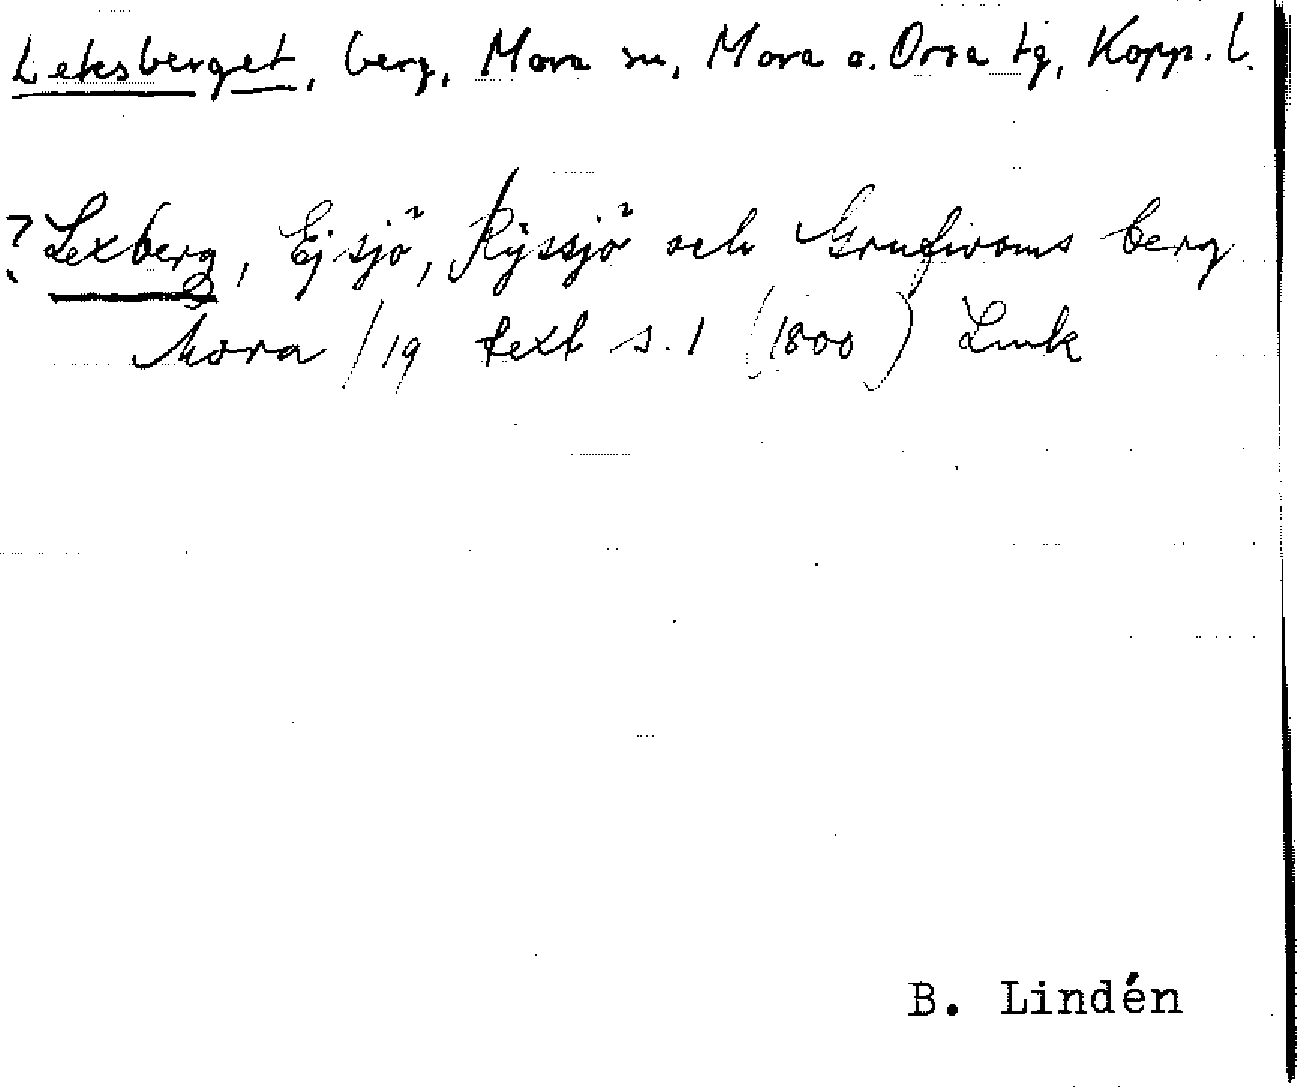 Leksberget, berg, Mora sn, Mora o. Orsa tg, Kopp. l.
? Lexberg, Ejsjö, Ryssjö och berg
Mora /19 text s. 1 (1800) Lmk
B. Lindén